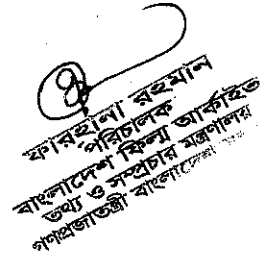 ফারহানা রহমান
পরিচালক
বাংলাদেশ ফিল্ম আর্কাইভ
তথ্য ও সম্প্রচার মন্ত্রণালয়
গণপ্রজাতন্ত্রী বাংলাদেশ